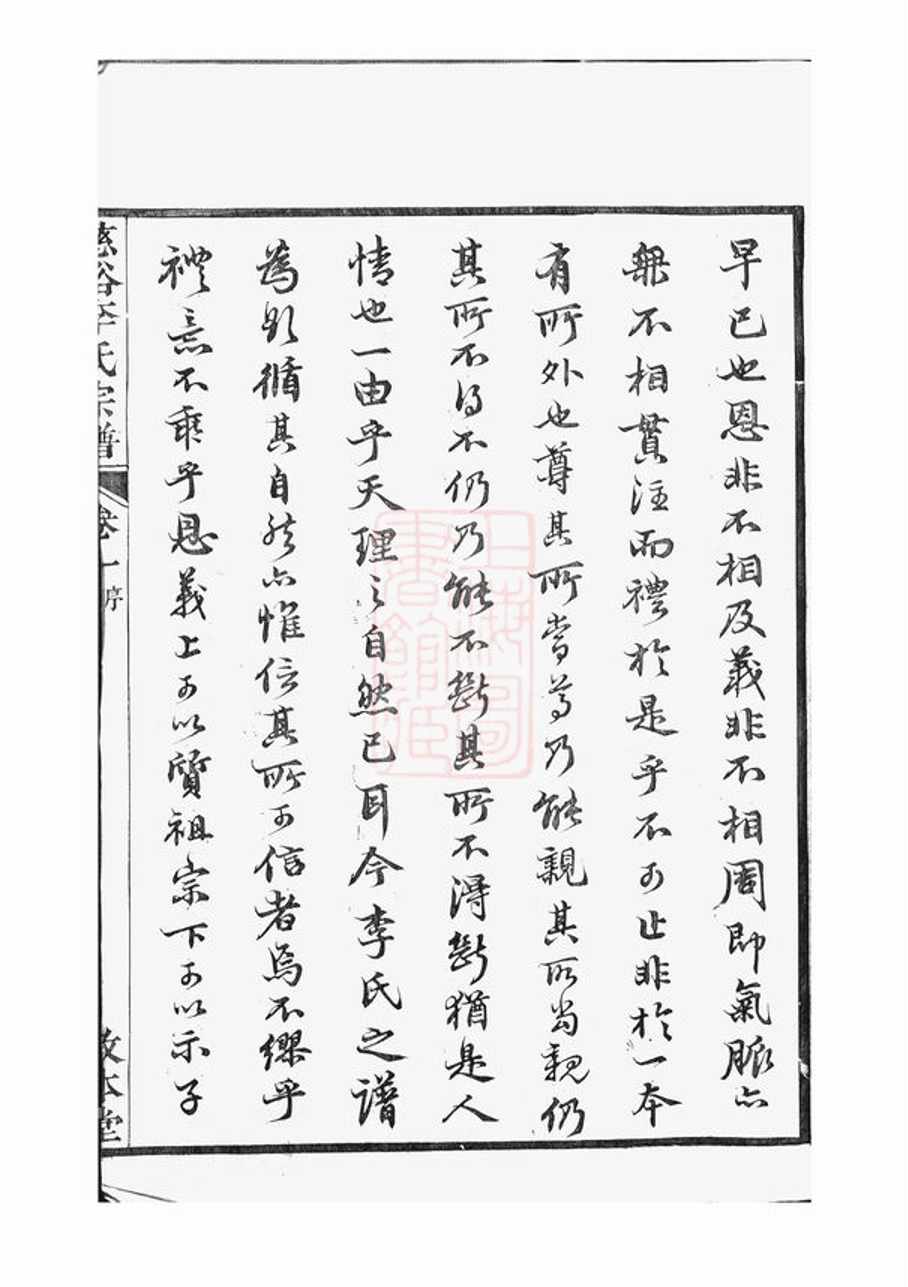 早已也恩非不相及義非不相周即氣脈亦
無不相貫注而禮於是乎不可止非於一本
有所外也尊其所當尊乃能親其所當親仍
其所不得不仍乃能不斷其所不得斷猶是人
情也一由乎天理之自然已耳今李氏之譜
為則循其自然亦惟信其所可信者焉不繆乎
禮意不乖乎恩義上可以質祖宗下可以示子
慈谷李氏宗譜
卷一
序
敦本堂
上海圖
書館